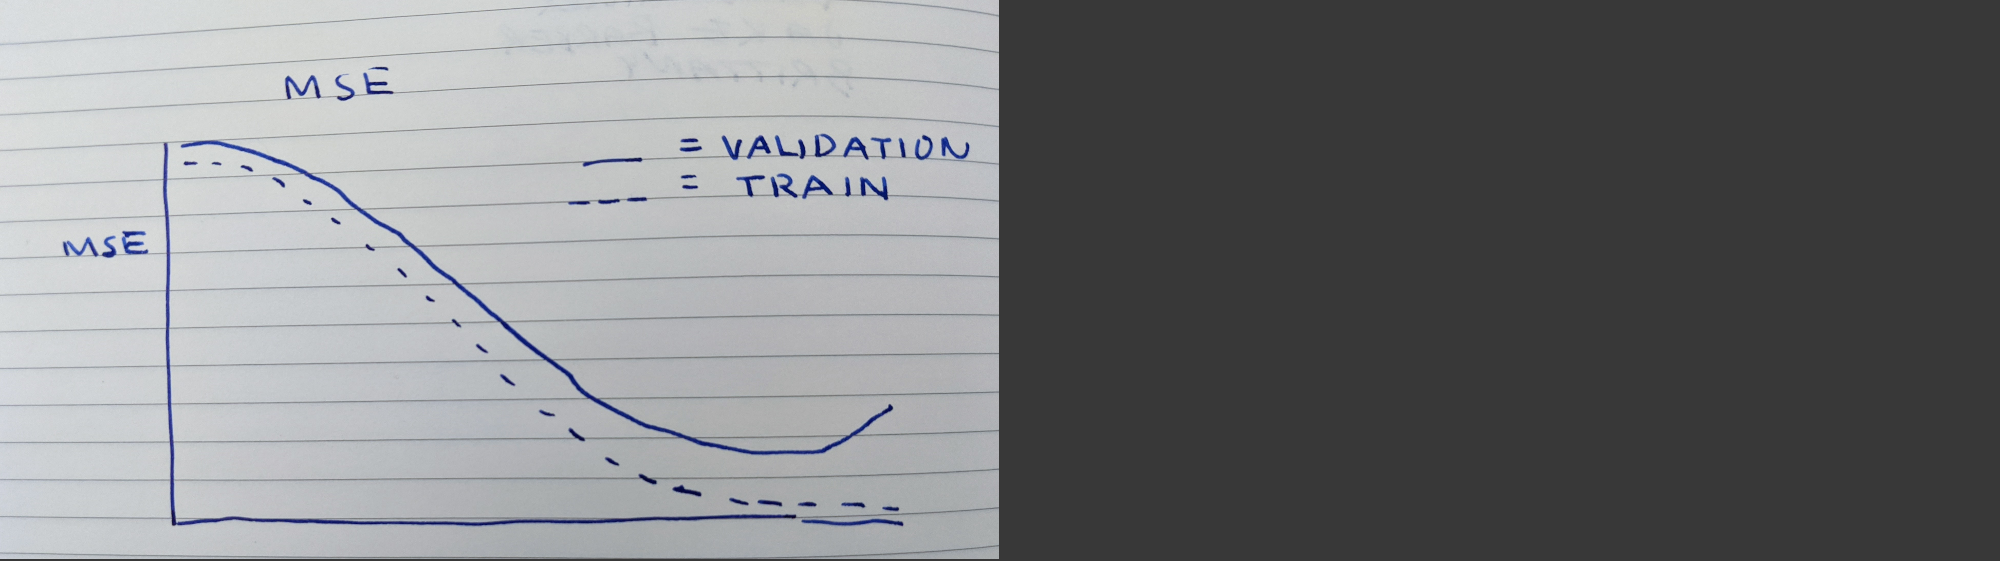 MSE
= VALIDATION
= TRAIN
MSE